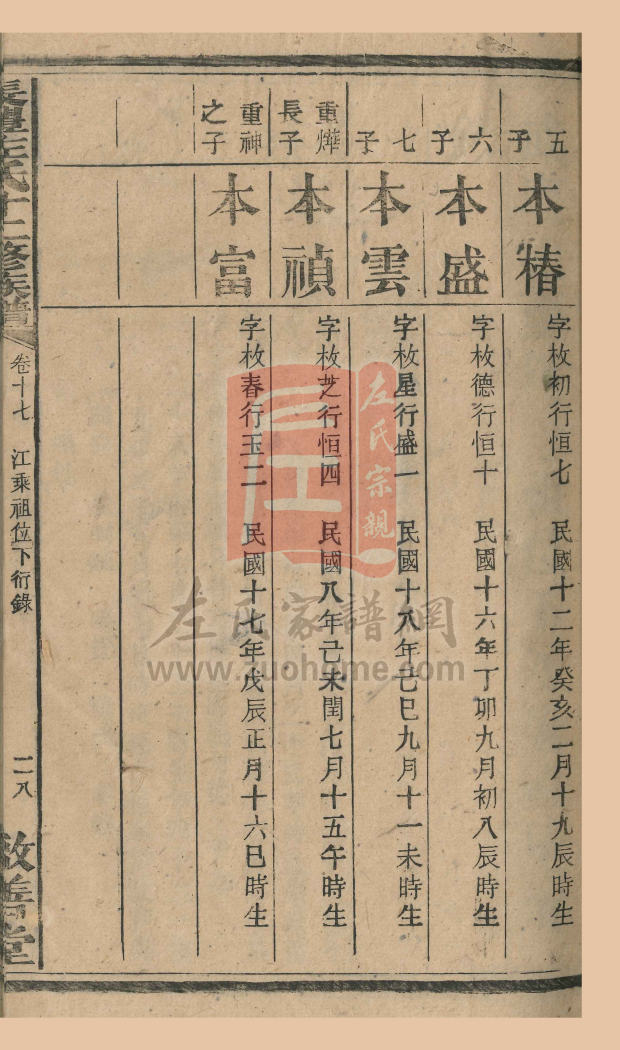 五子
本椿
字枚初行恒七　民國十二年癸亥二月十九辰時生
六子
本盛
字枚德行恒十　民國十六年丁卯九月初八辰時生
七子
本雲
字枚星行盛一　民國十八年己巳九月十一未時生
重燁長子
本禎
字枚芝行恒四　民國八年己未閏七月十五午時生
重神之子
本富
字枚春行玉二　民國十七年戊辰正月十六巳時生
左氏十二修族譜
卷十七　江乘祖位下衍錄
二八
敬善堂
左氏宗親
左氏家譜網
www.zuohome.com